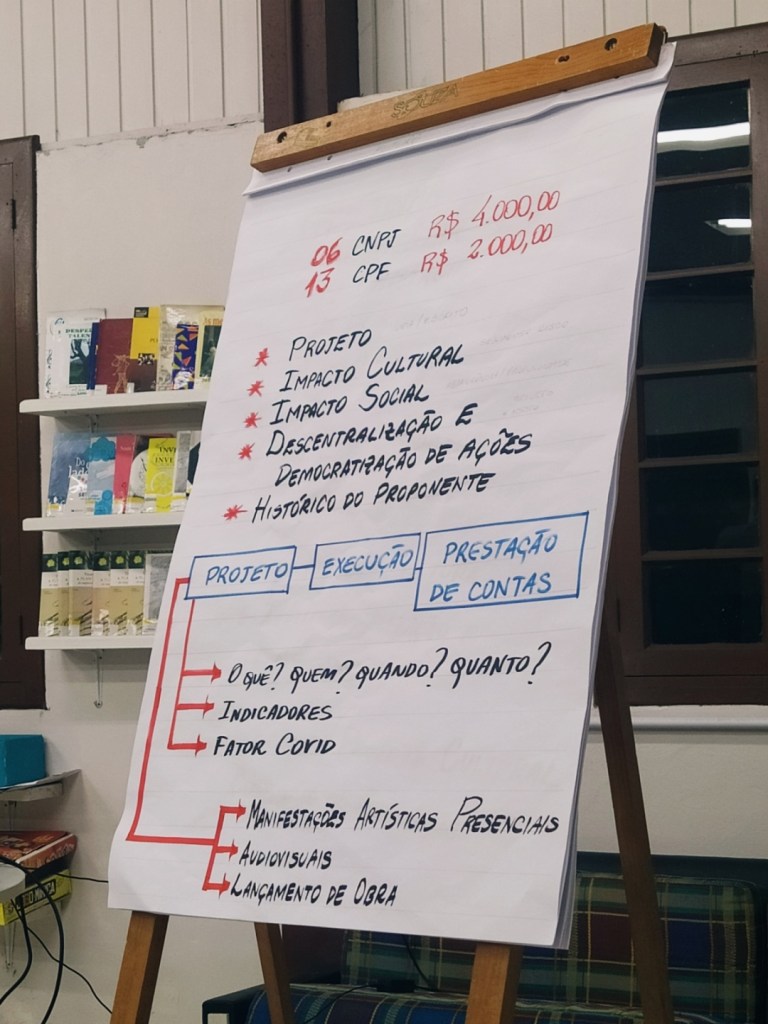 06 CNPJ R$ 4.000,00
13 CPF R$ 2.000,00
* PROJETO
* IMPACTO CULTURAL
* IMPACTO SOCIAL
* DESCENTRALIZAÇÃO E
DEMOCRATIZAÇÃO DE AÇÕES
* HISTÓRICO DO PROPONENTE
PROJETO EXECUÇÃO PRESTAÇÃO
DE CONTAS
O QUÊ? QUEM? QUANDO? QUANTO?
INDICADORES
FATOR COVID
MANIFESTAÇÕES ARTÍSTICAS PRESENCIAIS
AUDIOVISUAIS
LANÇAMENTO DE OBRA